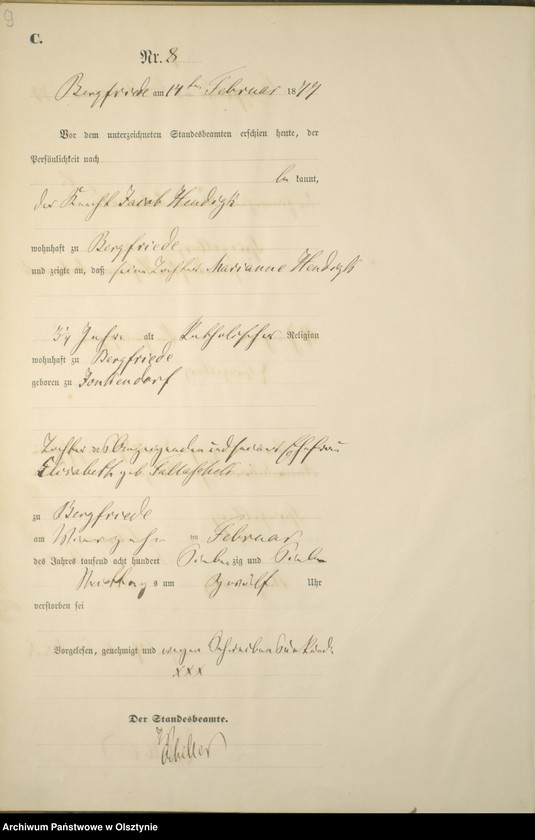 9
C.
Nr. 8
Bergfriede am 14ten Februar 1877
Vor dem unterzeichneten Standesbeamten erschien heute, der
Persönlichkeit nach
be kannt,
der Knecht Jacob Hendrzk
wohnhaft zu Bergfriede
und zeigte an, daß seine Tochter Marianne Hendrzk
3¼ Jahre alt Katholischer Religion
wohnhaft zu Bergfriede
geboren zu Jonkendorf
Tochter des Anzeigenden und seiner Ehefrau
Elisabeth geb
zu Bergfriede
am Vierzehn im Februar
des Jahres tausend acht hundert Sieben zig und Sieben
Mittags um Zwölf Uhr
verstorben sei
Vorgelesen, genehmigt und wegen Schreibens
xxx
Der Standesbeamte.
Archiwum Państwowe w Olsztynie